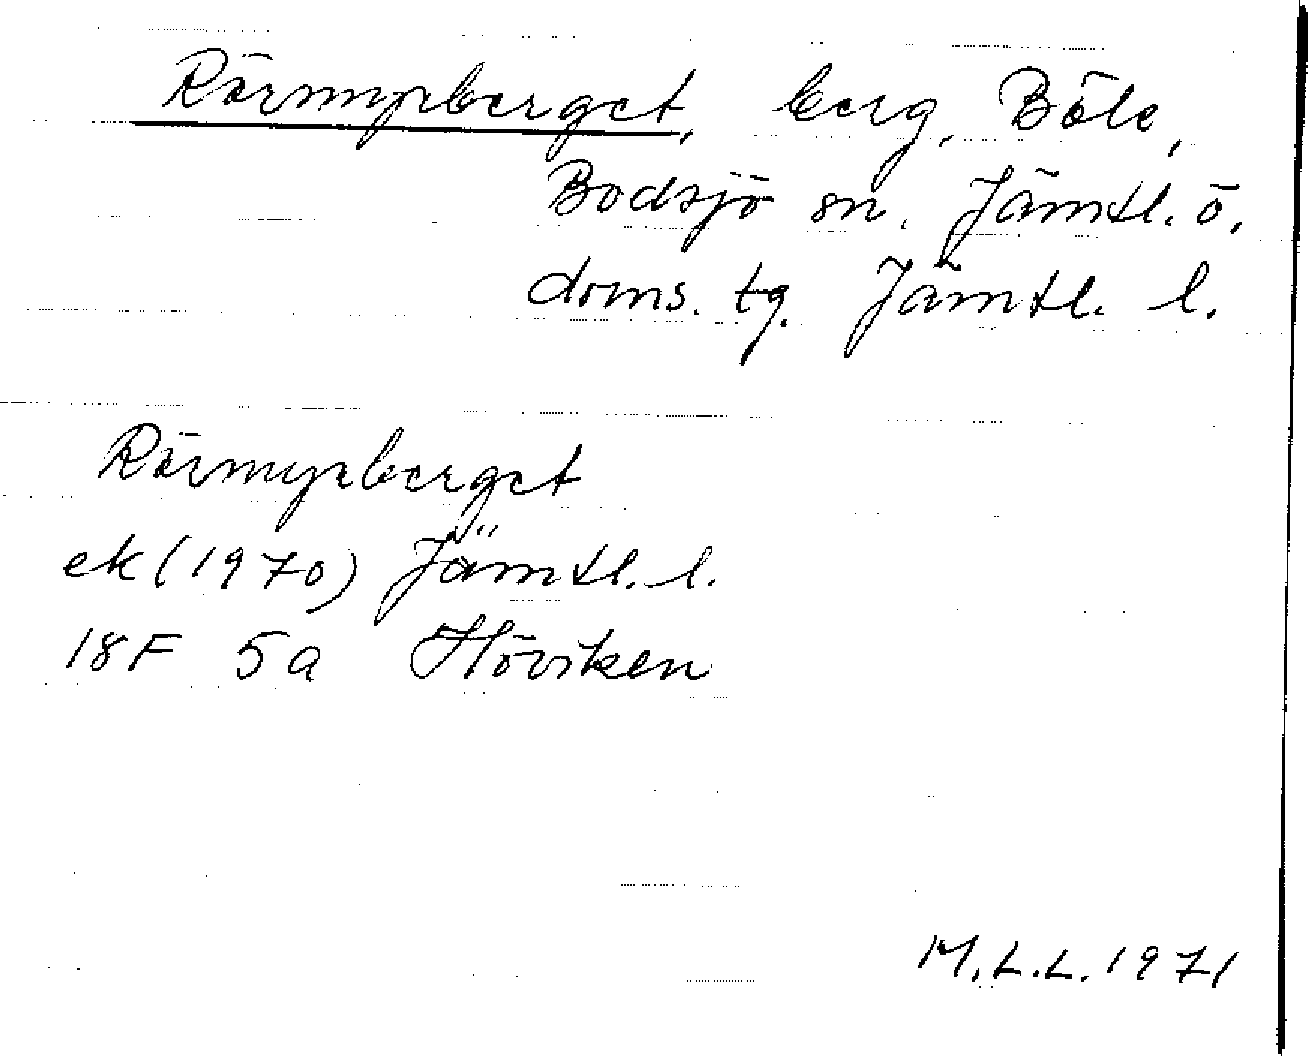 Rörmyrberget, berg, Böle,
Bodsjö sn, Jämtl. ö.
doms. tg. Jämtl. l.
Rörmyrberget
ek (1970) Jämtl. l.
18F 5a Höviken
M.L.L. 1971